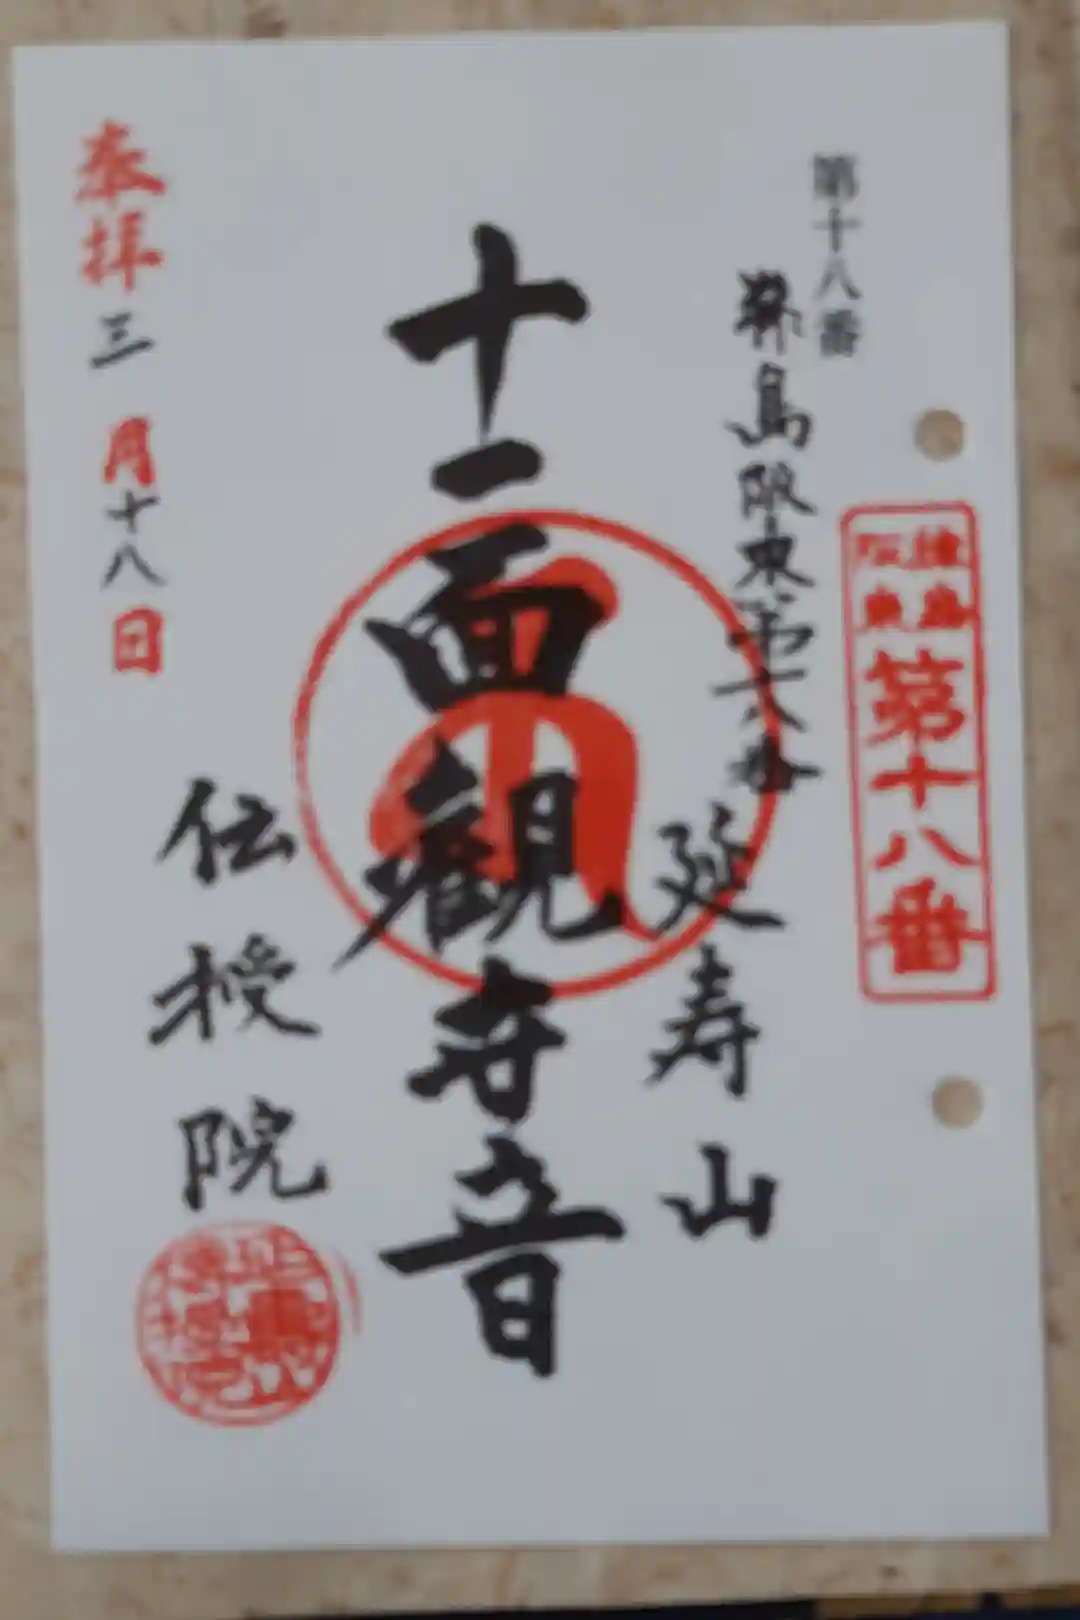 第十八番
葛島阪東第十八番
第十八番
延寿山
十一面観世音
伝授院
奉拝三月十八日